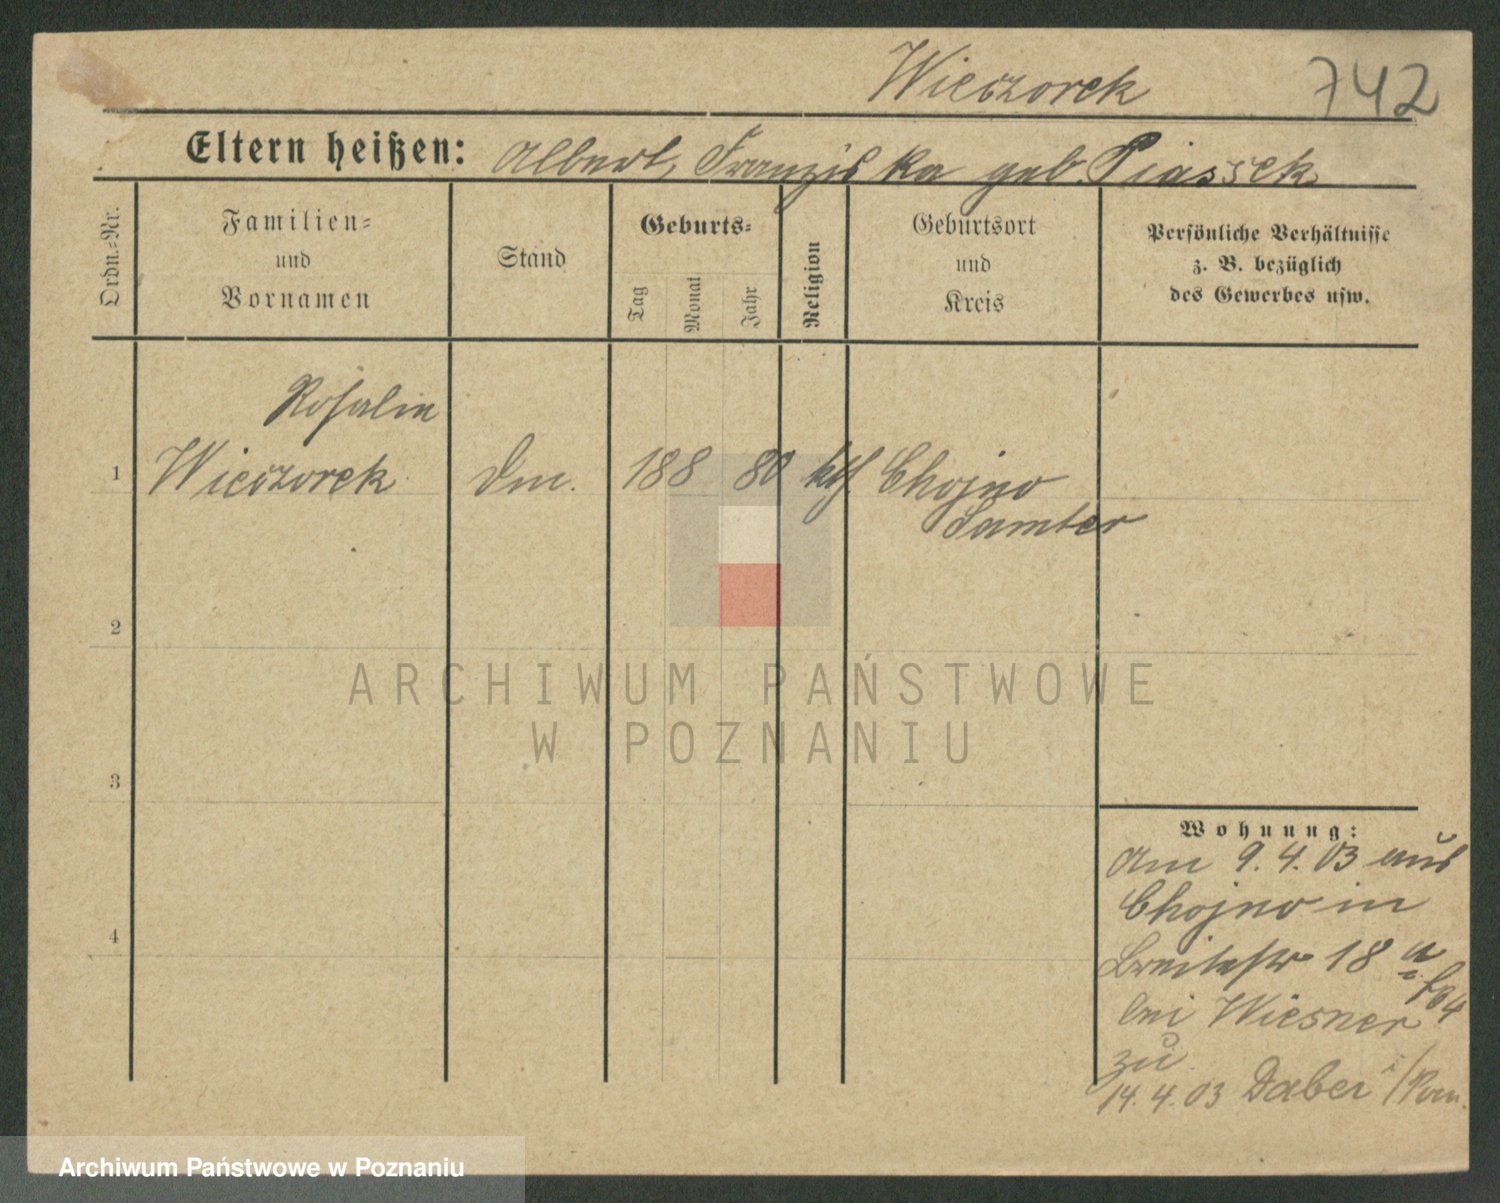 Wieczorek 742
Eltern heißen: Albert, Franziska geb. Piassek
Ordn.=Nr.
Familien=
und
Vornamen
Stand
Geburts=
Tag
Monat
Jahr
Religion
Geburtsort
und
Kreis
Persönliche Verhältnisse
z. B. bezüglich
des Gewerbes usw.
Rosalie
1 Wieczorek 18 8 80 kth. Chojno
Samter
2
3
4
Wohnung:
Am 9.4.03 aus
Chojno in
Breitestr 18 a
bei Wiesner
zu
14.4.03 Daber i/Pom.
ARCHIWUM PAŃSTWOWE
W POZNANIU
Archiwum Państwowe w Poznaniu